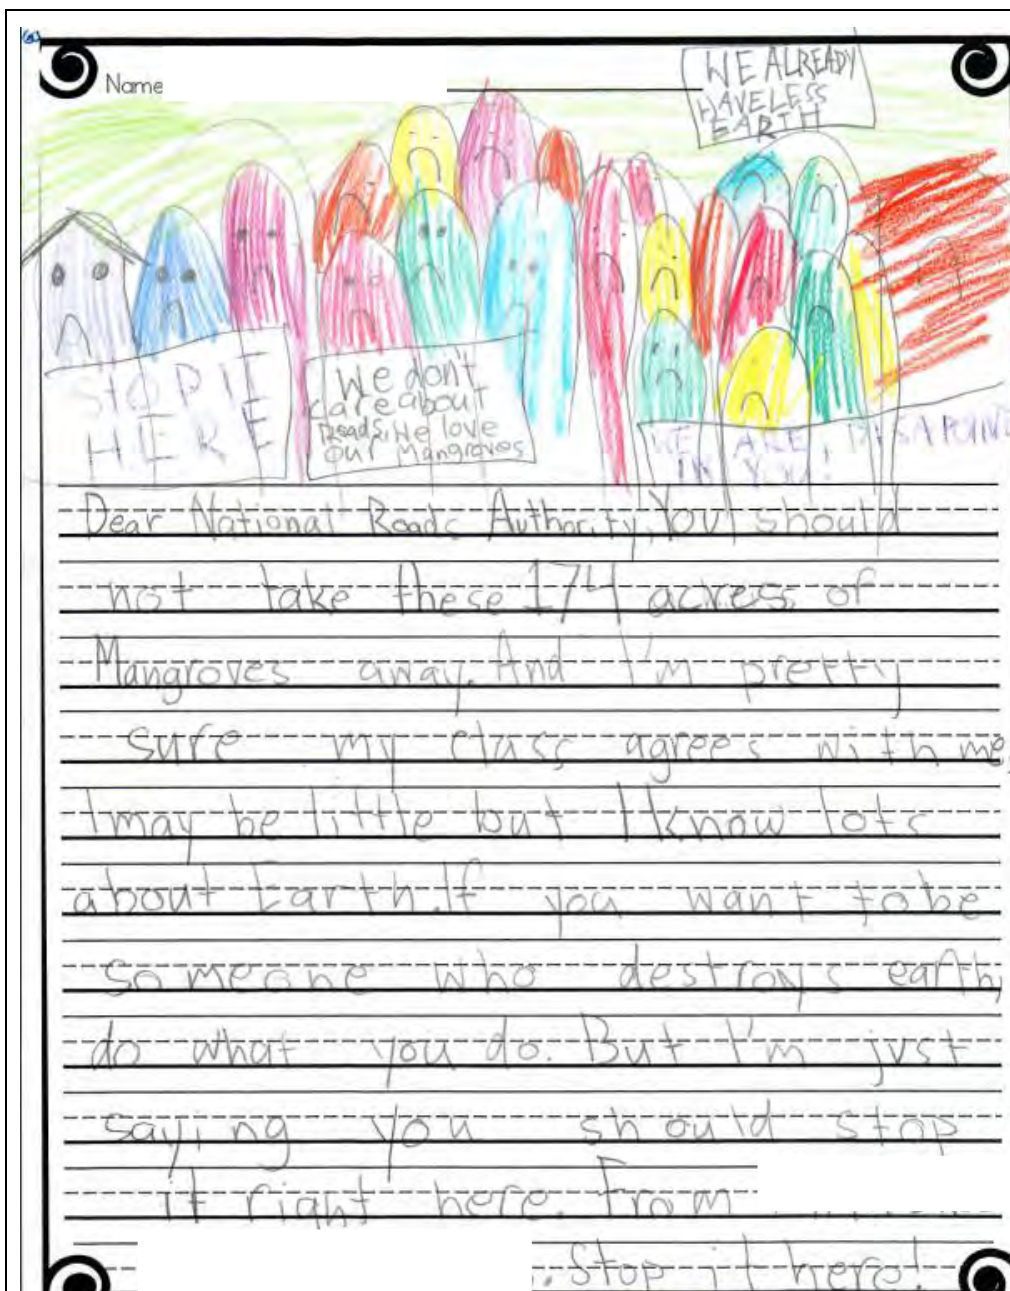 Name
WE ALREADY
HAVE LESS
EARTH
STOP IT
HERE
We don't
care about
Roads, We love
our Mangroves
WE ARE DISAPOINT
IN YOU!
Dear National Roads Authority, You should
not take these 174 acress of
Mangroves away. And I'm pretty
sure my class agrees with me,
I may be little but I know lots
about Earth. If you want to be
someone who destroys earth,
do what you do. But I'm just
saying you should stop
it right here. From
. Stop it here!